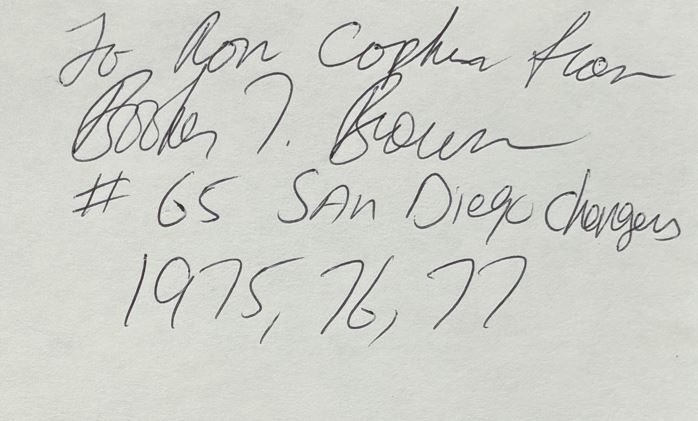 To Ron from
Booker T. Brown
# 65 SAn Diego Chargers
1975, 76, 77